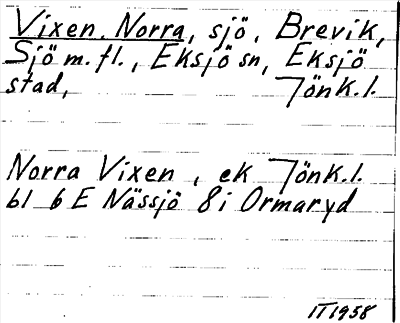 Vixen. Norra, sjö, Brevik,
Sjö m. fl., Eksjö sn, Eksjö
stad, Jönk. l.
Norra Vixen, ek Jönk. l.
bl 6 E Nässjö 8i Ormaryd
IT 1958